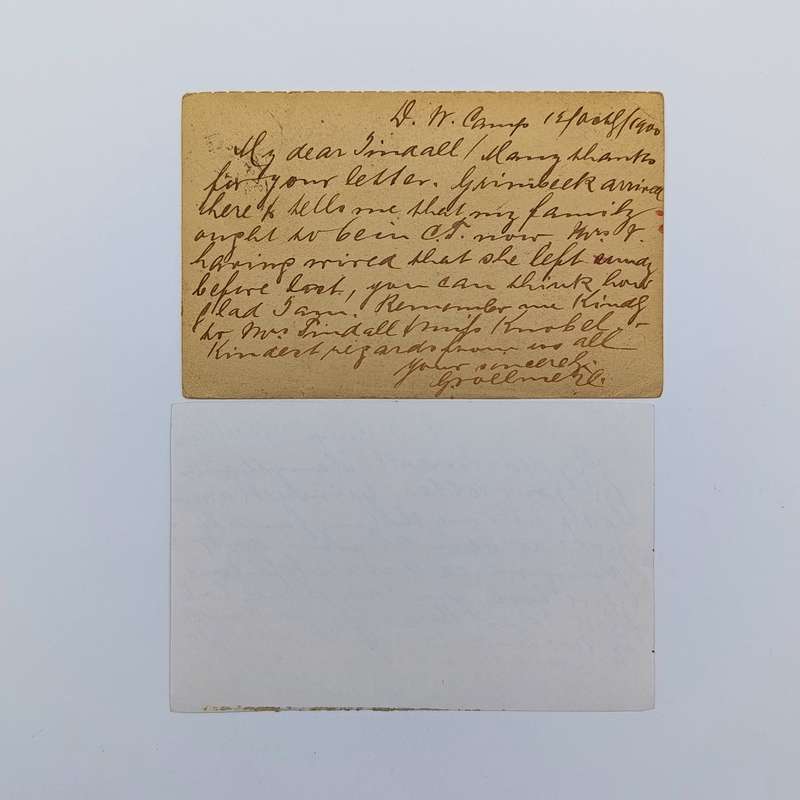 D. W. Camp 12/Octb/1900
My dear Tindall / Many thanks
for your letter. Grimbeek arrived
here & tells me that my family
ought to be in C.T. now Mrs T.
having wired that she left
before last, you can think how
glad I am. Remember me Kindly
to Mrs Tindall & Miss Knobel &
Kindest regards from us all
Your sincerely